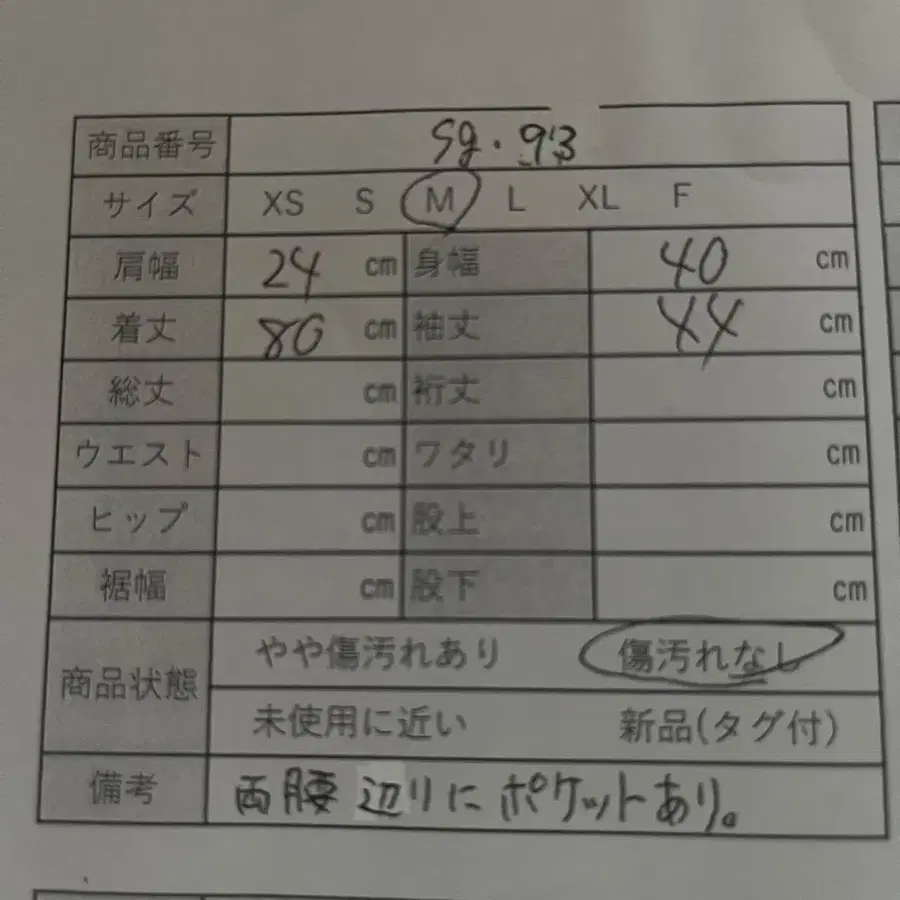 商品番号 Sg・913
サイズ XS S M L XL F
肩幅 24 cm 身幅 40 cm
着丈 80 cm 袖丈 44 cm
総丈 cm 裄丈 cm
ウエスト cm ワタリ cm
ヒップ cm 股上 cm
裾幅 cm 股下 cm
商品状態 やや傷汚れあり 傷汚れなし
未使用に近い 新品(タグ付)
備考 両腰辺りにポケットあり。